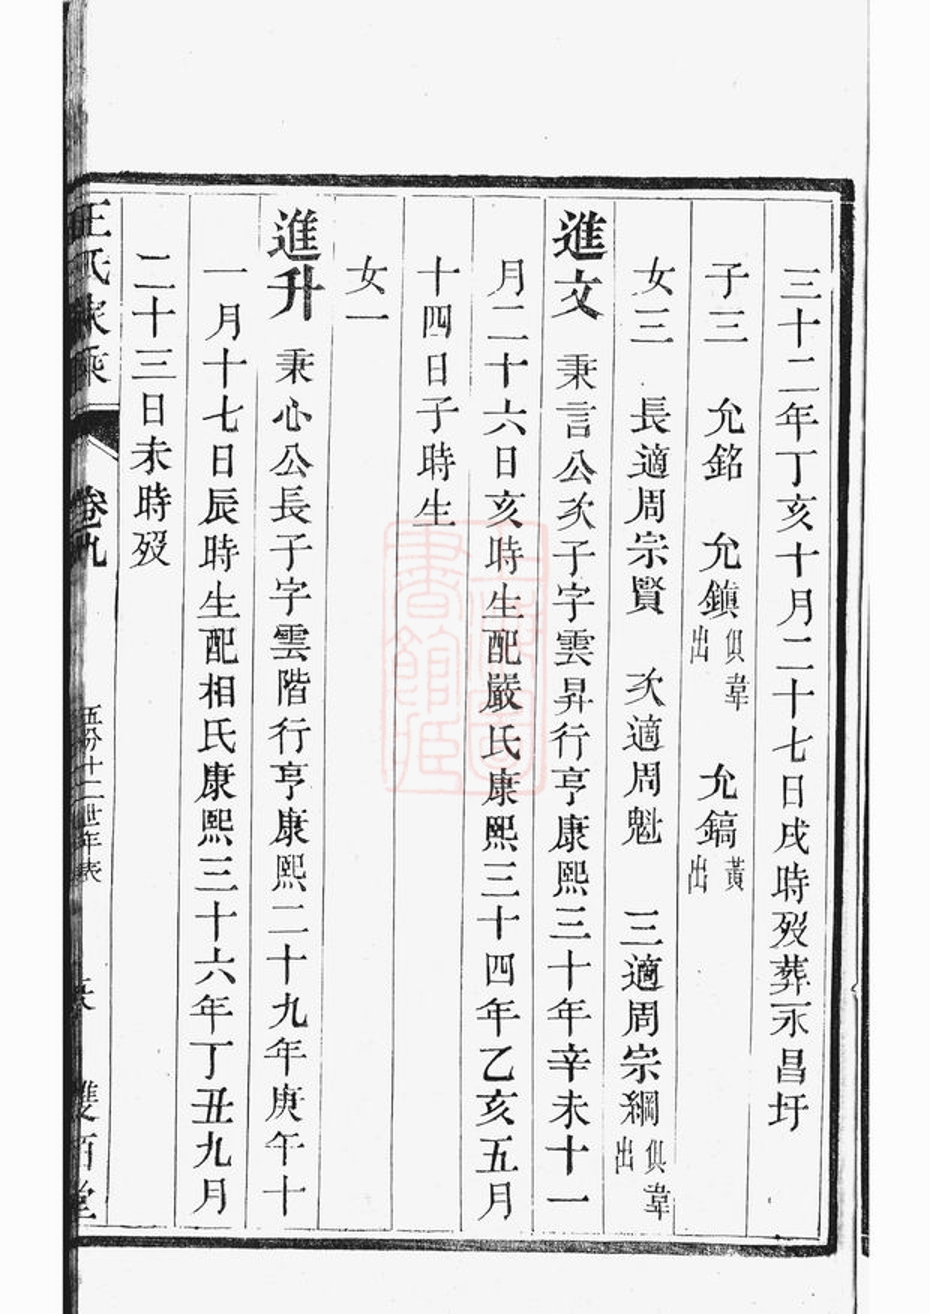 三十二年丁亥十月二十七日戌時歿葬永昌圩
子三　允銘　允鎮俱韋出　允鎬黃出
女三　長適周宗賢　次適周魁　三適周宗綱俱韋出
進文　秉言公次子字雲昇行亨康熙三十年辛未十一
月二十六日亥時生配嚴氏康熙三十四年乙亥五月
十四日子時生
女一
進升　秉心公長子字雲階行亨康熙二十九年庚午十
一月十七日辰時生配相氏康熙三十六年丁丑九月
二十三日未時歿
王氏家乘　卷九　五分十二世年表　雙百堂